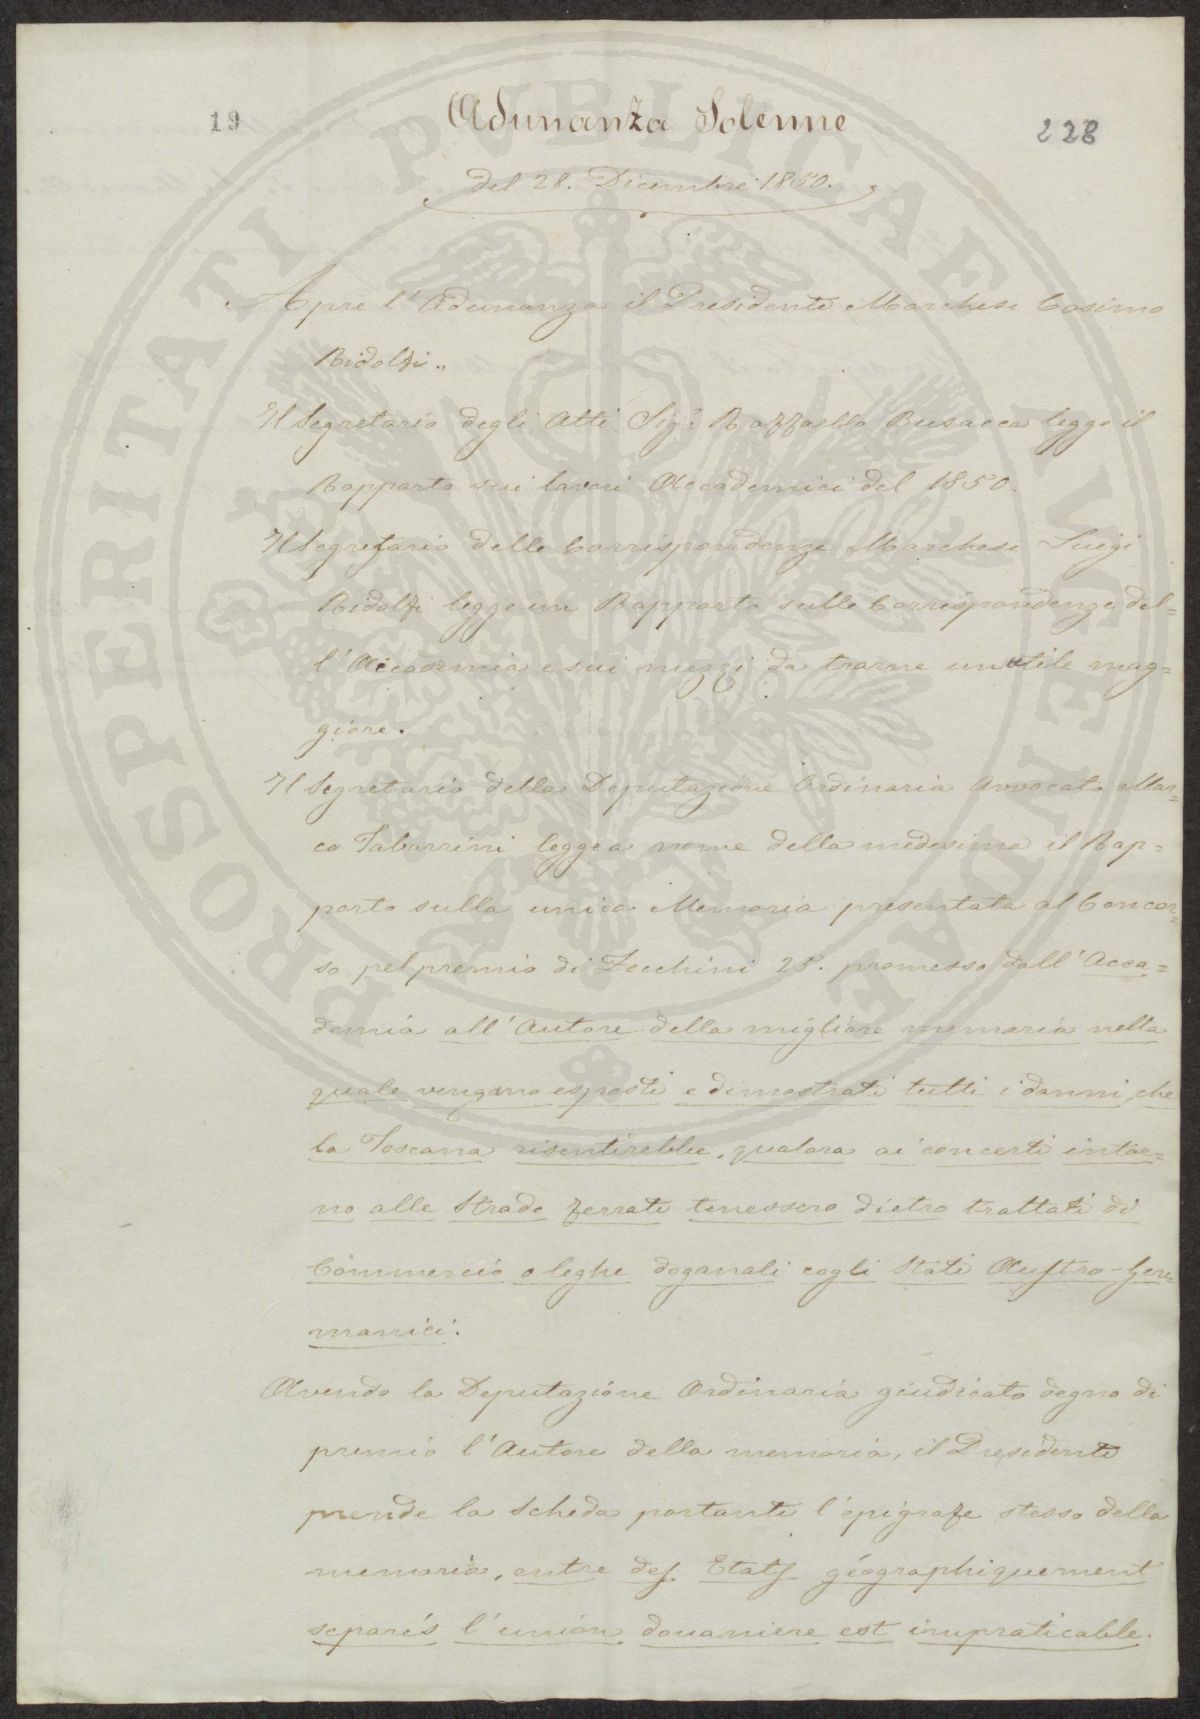 19
Adunanza Solenne
228
del 28. Dicembre 1850.
Apre l'Adunanza il Presidente Marchese Cosimo
Ridolfi.,
Il Segretario degli Atti Sig.r Raffaello Busacca legge il
Rapporto sui lavori Accademici del 1850.
Il Segretario delle Corrispondenze Marchese Luigi
Ridolfi legge un Rapporto sulle Corrispondenze del=
l'Accademia e sui mezzi da trarne un utile mag=
giore.
Il Segretario della Deputazione Ordinaria Avvocato Mar=
co Tabarrini legge a nome della medesima il Rap=
porto sulla unica Memoria presentata al Concor=
so pel premio di Zecchini 25. promesso dall'Acca=
demia all'Autore della migliore memoria nella
quale vengano esposti e dimostrati tutti i danni, che
la Toscana risentirebbe, qualora ai concerti intor=
no alle Strade ferrate tenessero dietro trattati di
Commercio o leghe doganali cogli Stati Austro-Ger=
manici.
Avendo la Deputazione Ordinaria giudicato degno di
premio l'Autore della memoria, il Presidente
prende la scheda portante l'epigrafe stesso della
memoria, entre des Etats géographiquement
separés l'union douaniere est impraticable.
PROSPERITATI PUBLICAE AUGENDAE